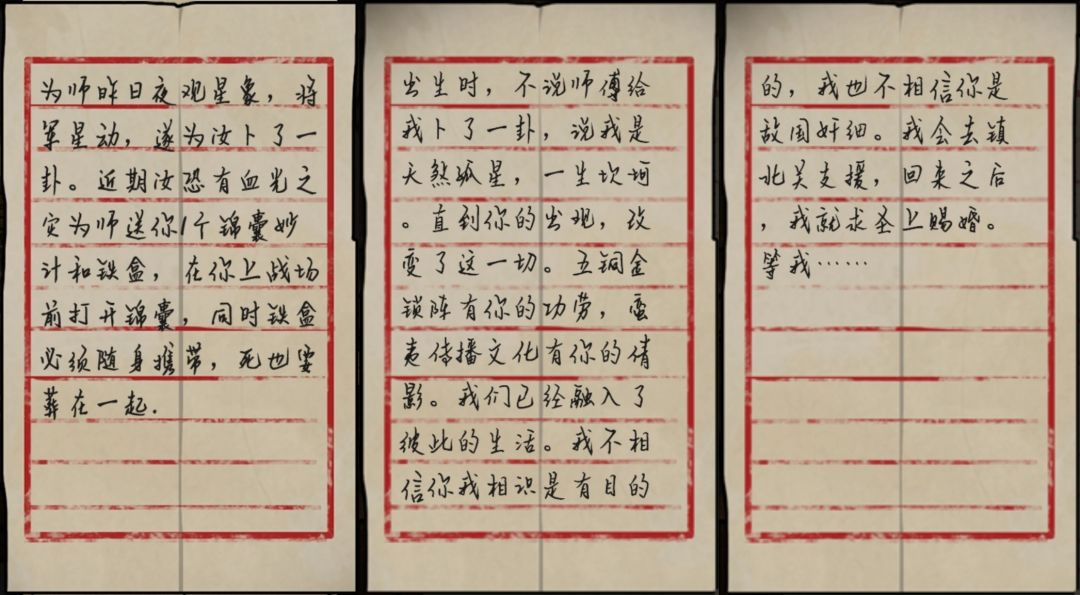 为师昨日夜观星象，将
军星动，遂为汝卜了一
卦。近期汝恐有血光之
灾为师送你1个锦囊妙
计和铁盒，在你上战场
前打开锦囊，同时铁盒
必须随身携带，死也要
葬在一起.
出生时，不说师傅给
我卜了一卦，说我是
天煞孤星，一生坎坷
。直到你的出现，改
变了这一切。五铜金
锁阵有你的功劳，蛮
夷传播文化有你的倩
影。我们已经融入了
彼此的生活。我不相
信你我相识是有目的
的，我也不相信你是
敌国奸细。我会去镇
北关支援，回来之后
，我就求圣上赐婚。
等我……